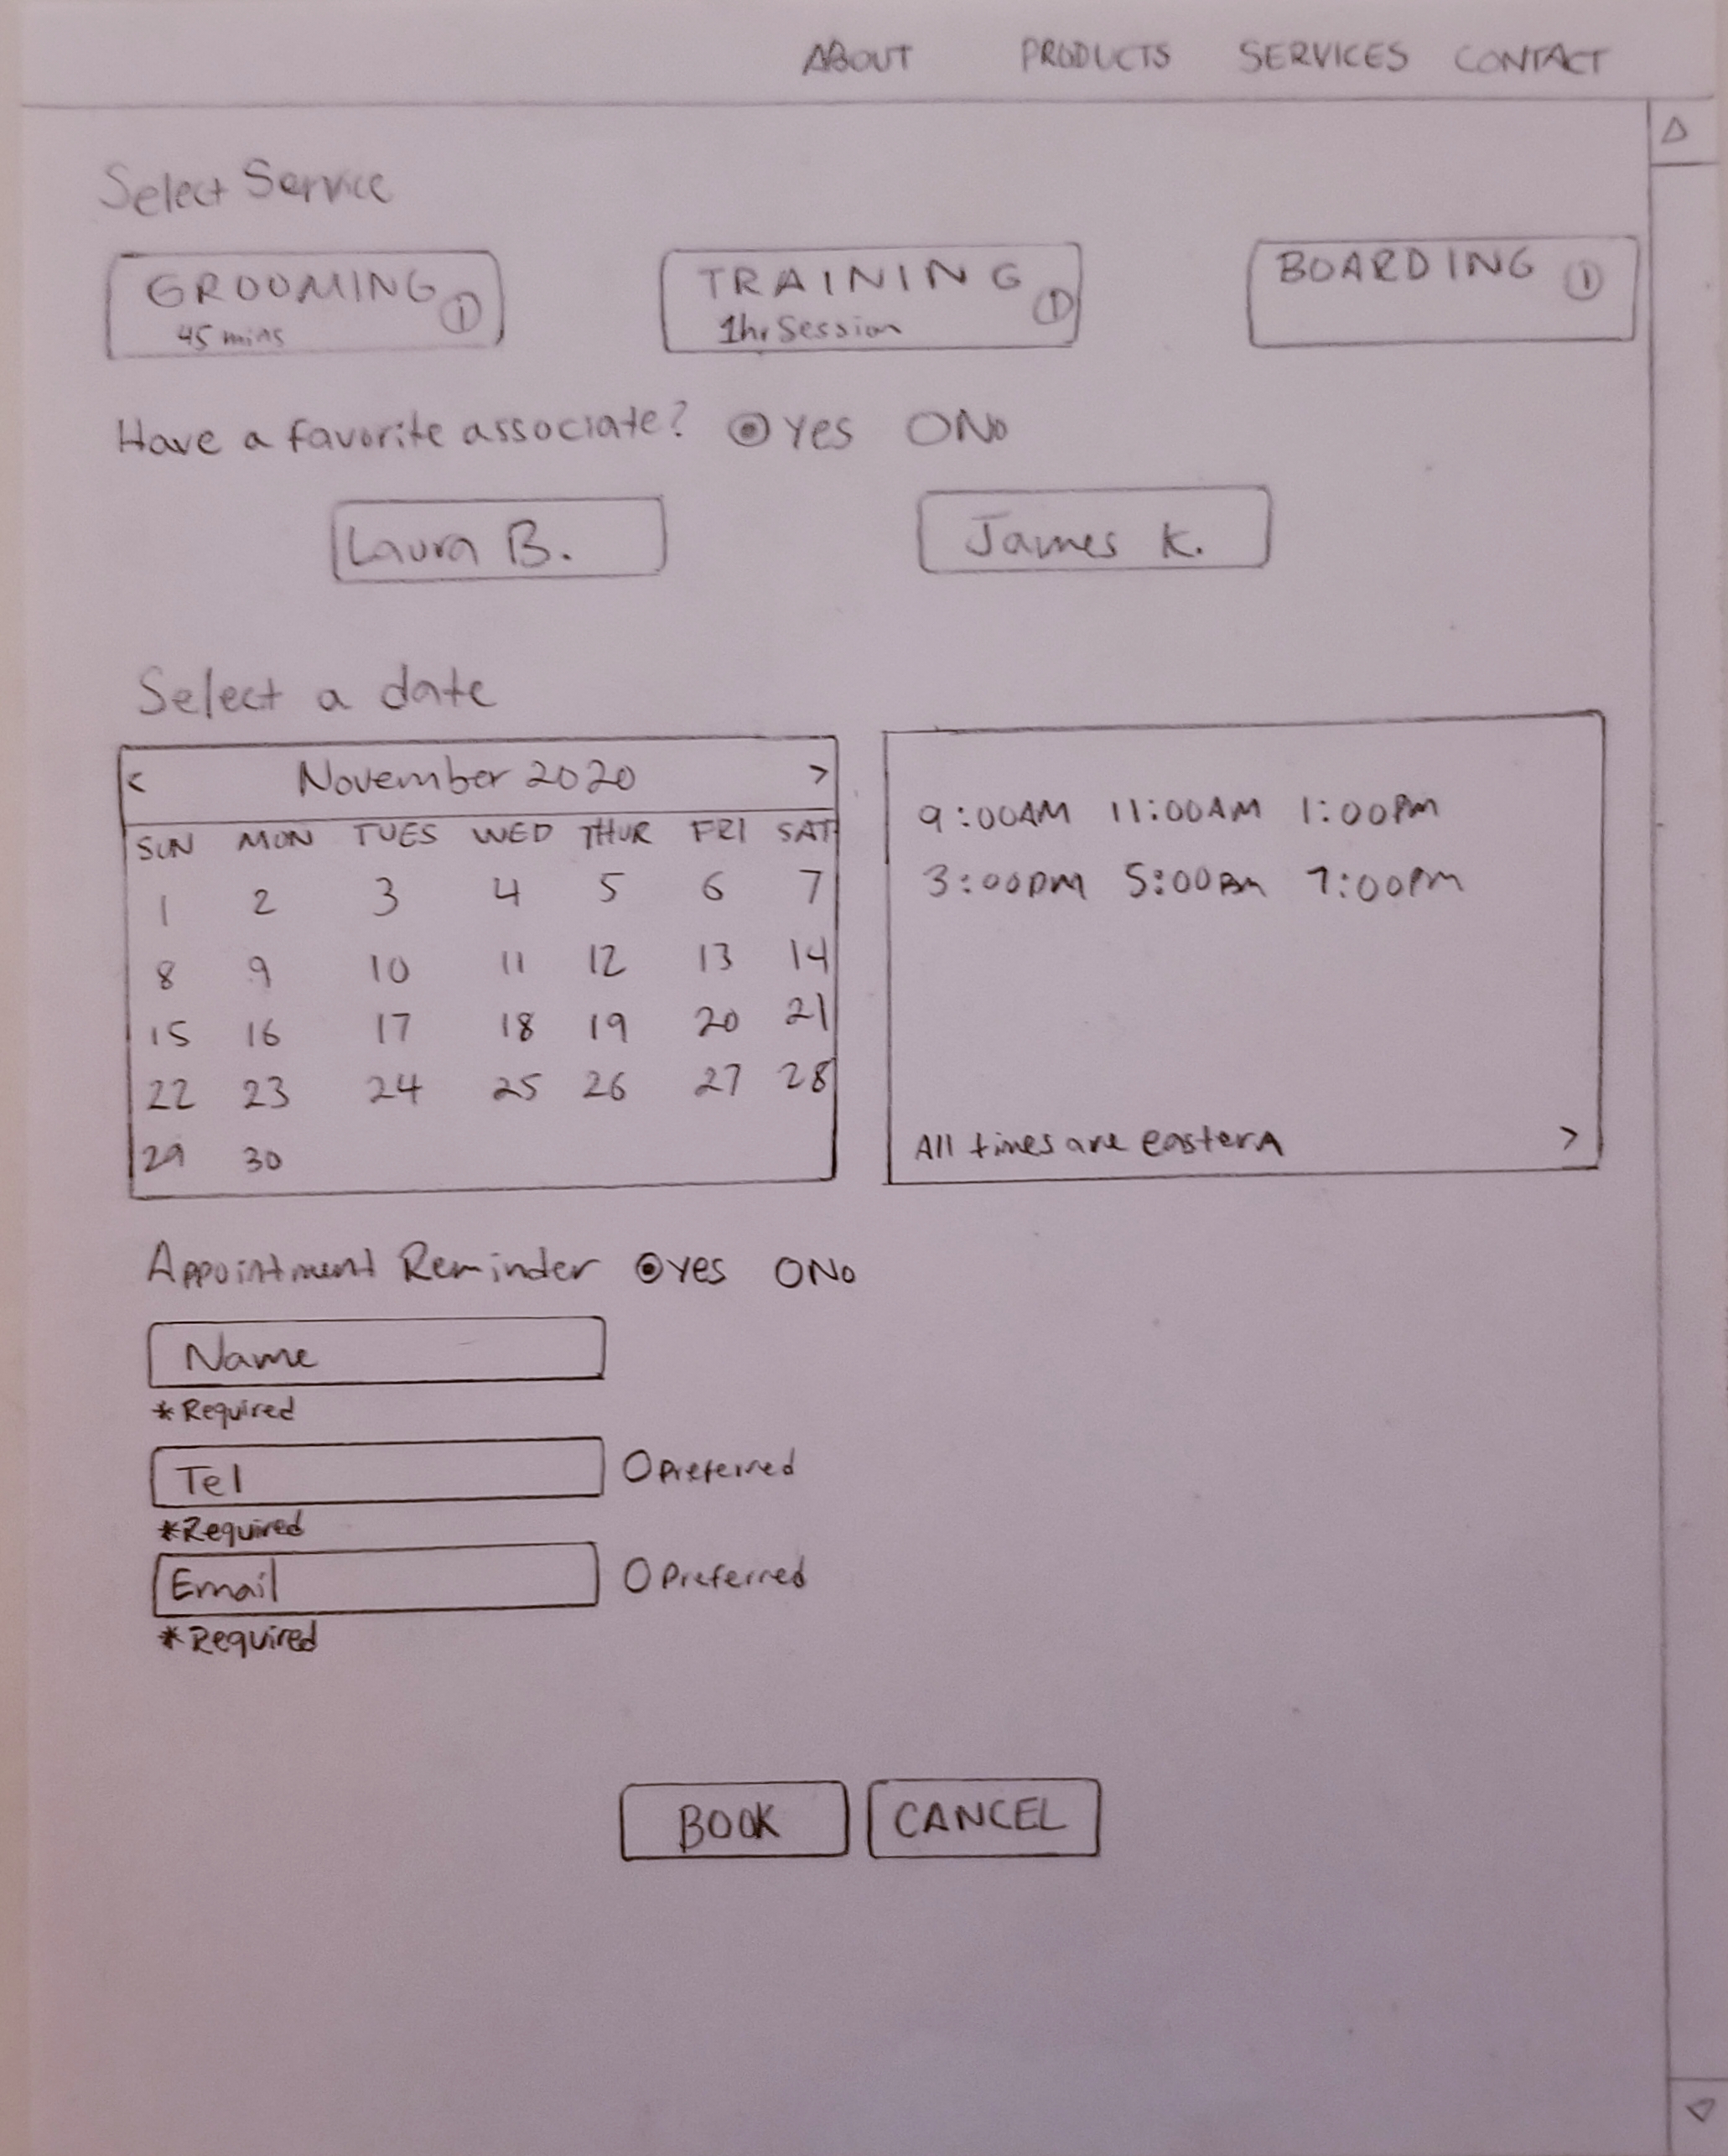 ABOUT PRODUCTS SERVICES CONTACT
Select Service
GROOMING TRAINING BOARDING
45 mins 1hr Session
Have a favorite associate? Yes No
Laura B. James K.
Select a date
< November 2020 >
SUN MON TUES WED THUR FRI SAT
1 2 3 4 5 6 7
8 9 10 11 12 13 14
15 16 17 18 19 20 21
22 23 24 25 26 27 28
29 30
9:00AM 11:00AM 1:00PM
3:00PM 5:00PM 7:00PM
All times are eastern >
Appointment Reminder Yes No
Name
*Required
Tel Preferred
*Required
Email Preferred
*Required
BOOK CANCEL